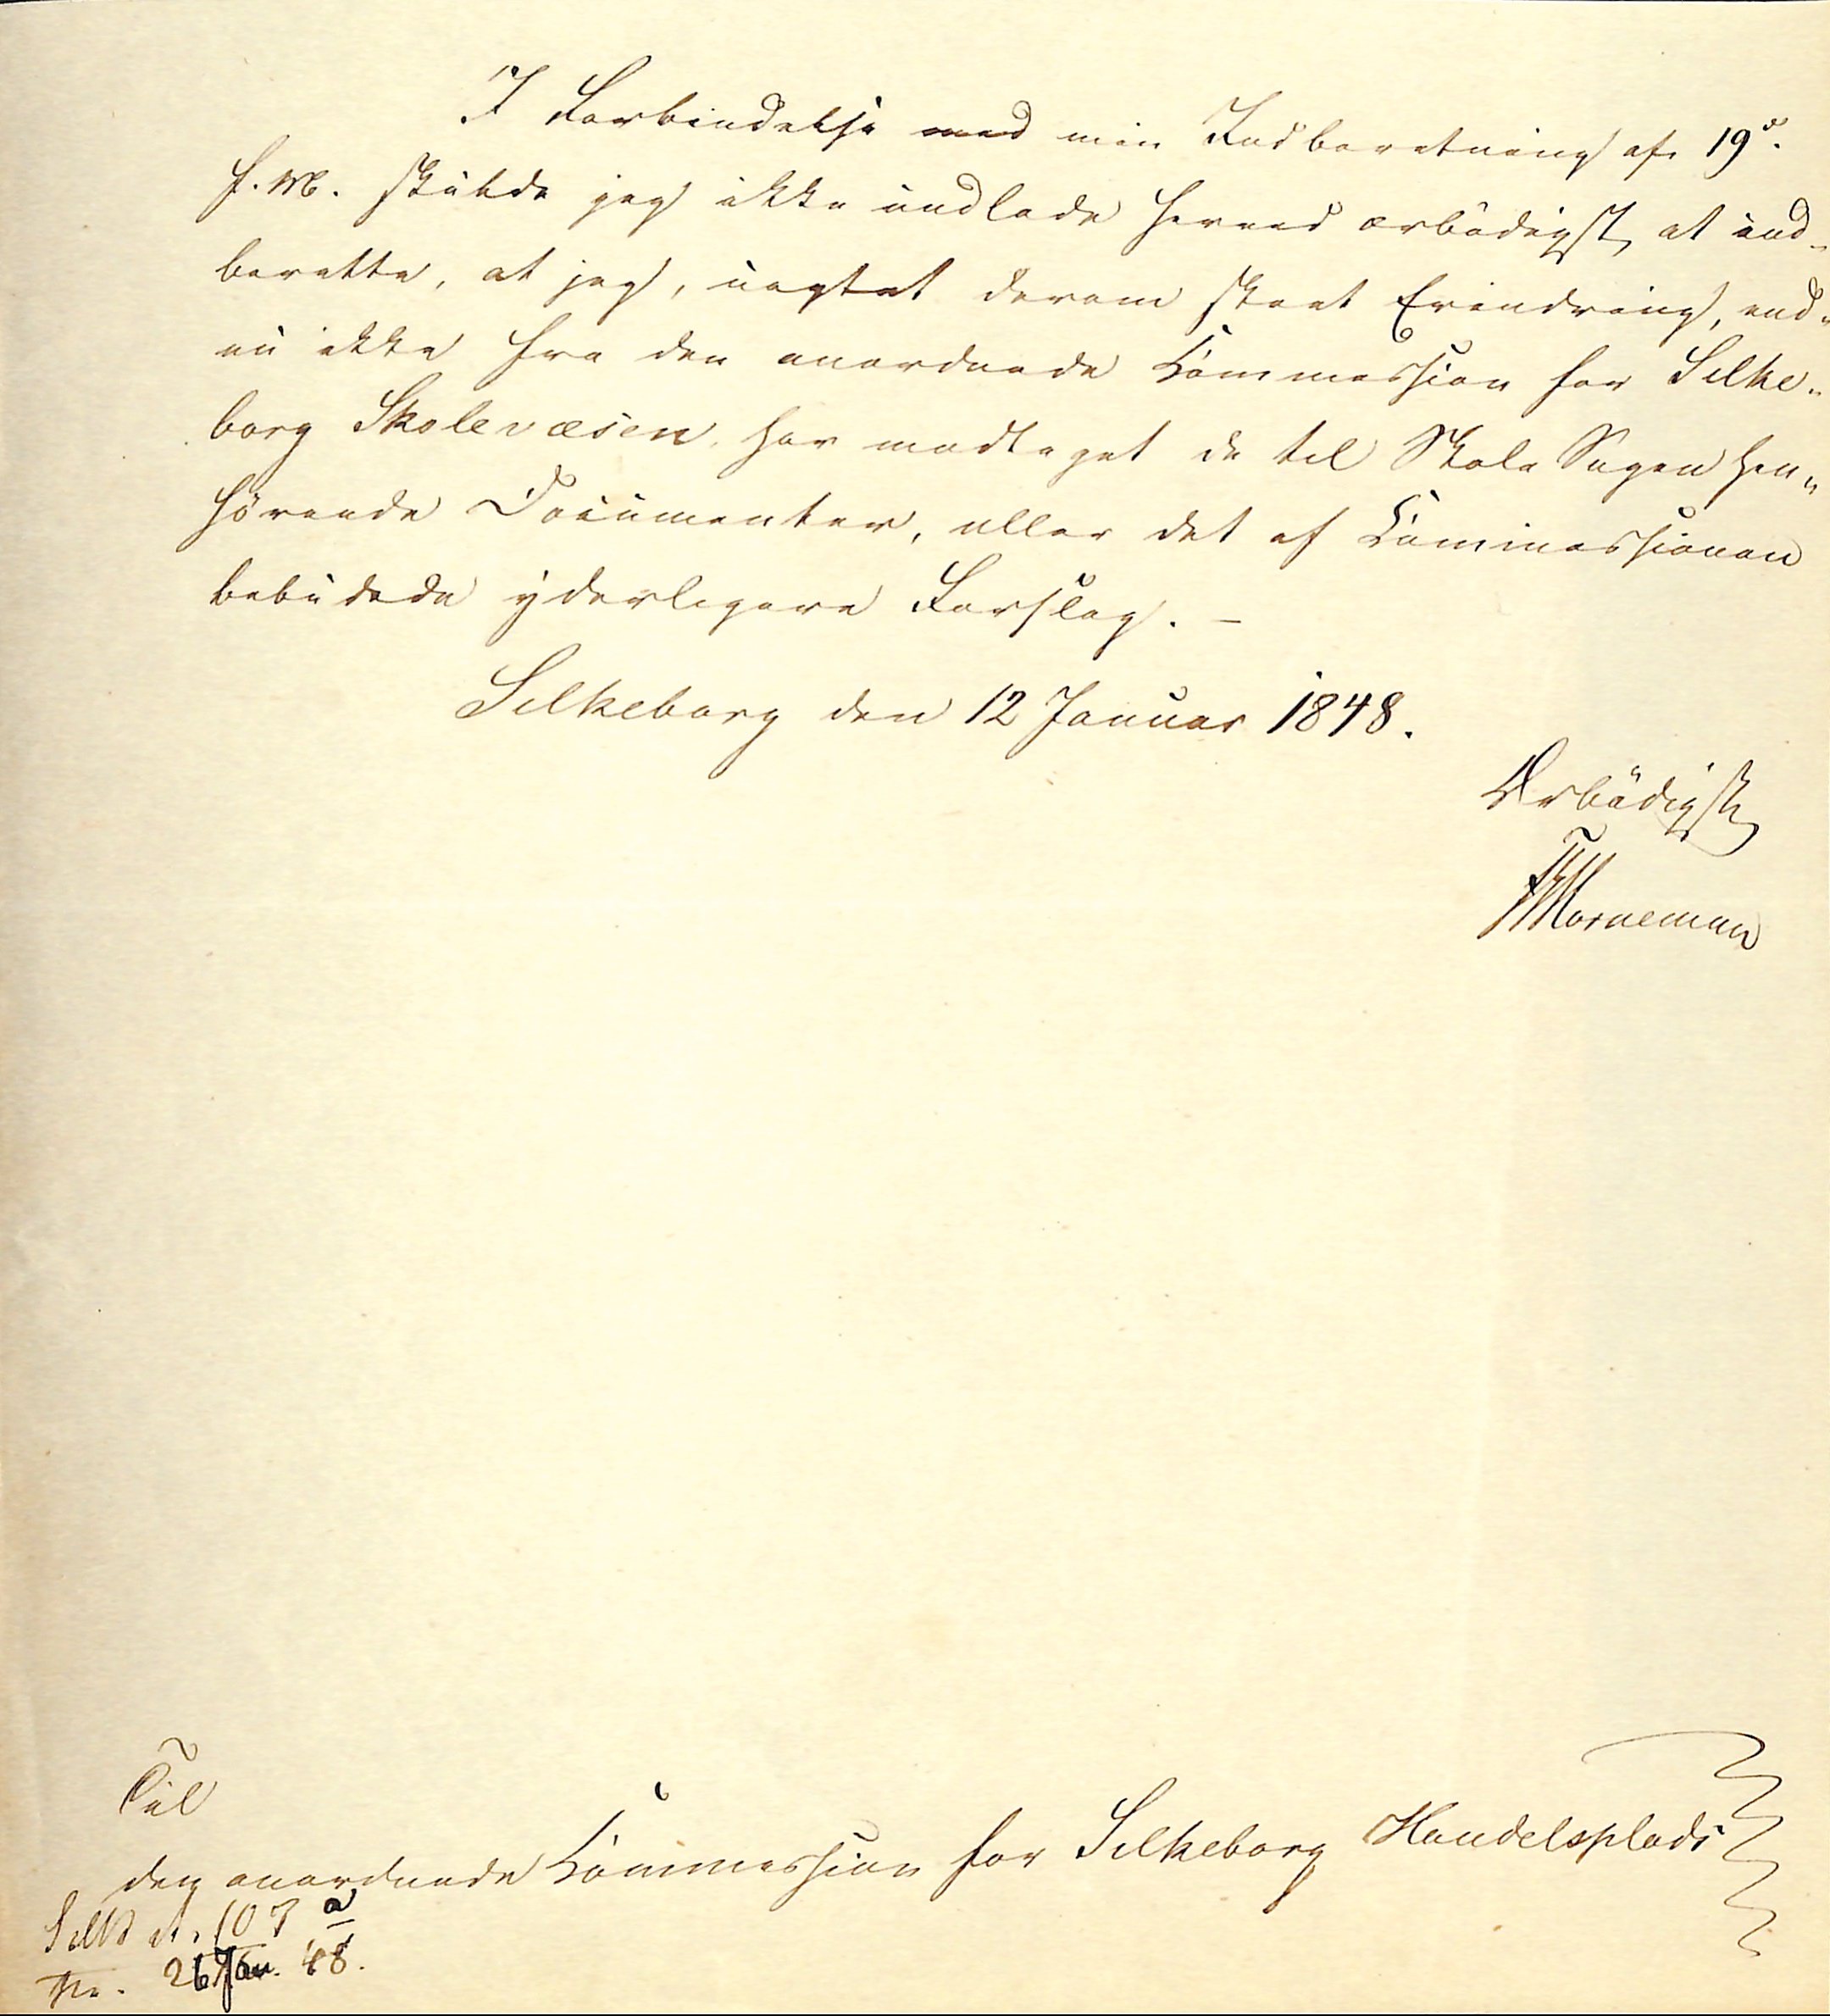 I Forbindelse med min Indberetning af 19de
f. M. skulde jeg ikke undlade herved ærbödigst at ind-
berette, at jeg, uagtet derom skeet Erindring, end-
nu ikke fra den anordnede Commission for Silke-
borg Skolevæsen har modtaget de til Skole Sagen hen-
hørende Documenter, eller det af Commissionen
bebudede yderligere Forslag. –
Silkeborg den 12 Januar 1848.
Ærbödigst
Til
den anordnede Commission for Silkeborg Handelsplads
107 a
26 Jan. 48.